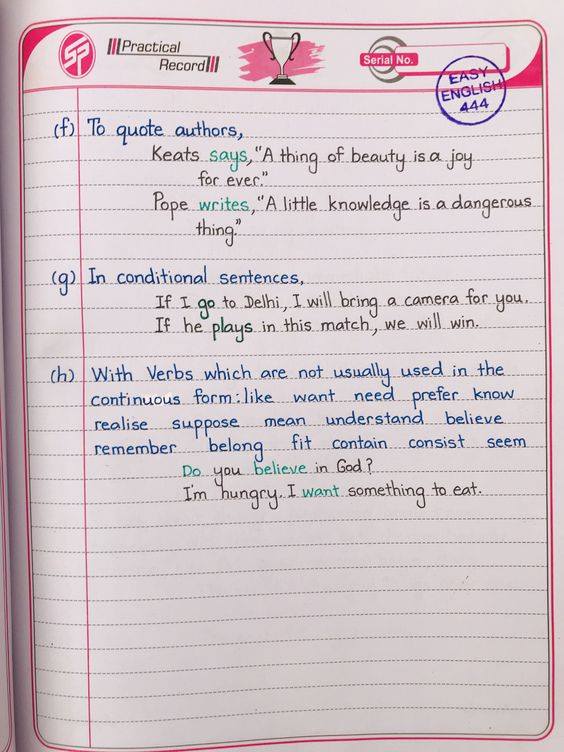 SP
Practical
Record
Serial No.
EASY
ENGLISH
444
(f) To quote authors,
Keats says, "A thing of beauty is a joy
for ever."
Pope writes, "A little knowledge is a dangerous
thing."
(g) In conditional sentences,
If I go to Delhi, I will bring a camera for you.
If he plays in this match, we will win.
(h) With Verbs which are not usually used in the
continuous form: like want need prefer know
realise suppose mean understand believe
remember belong fit contain consist seem
Do you believe in God?
I'm hungry. I want something to eat.